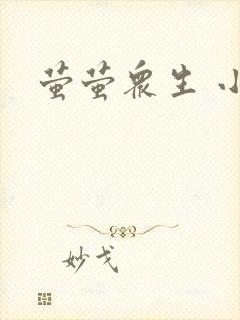 萤萤众生 小
妙戈